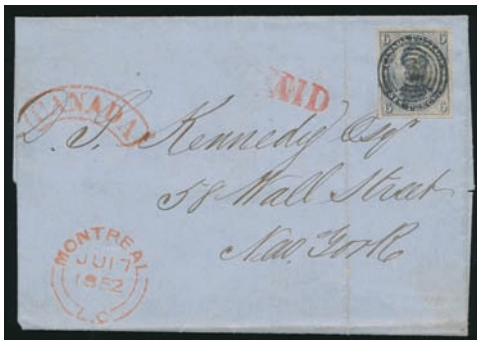 6 6
CANADA
PAID
D. S. Kennedy Esqr
58 Wall Street
New York
MONTREAL
JU 17
1852
L.C